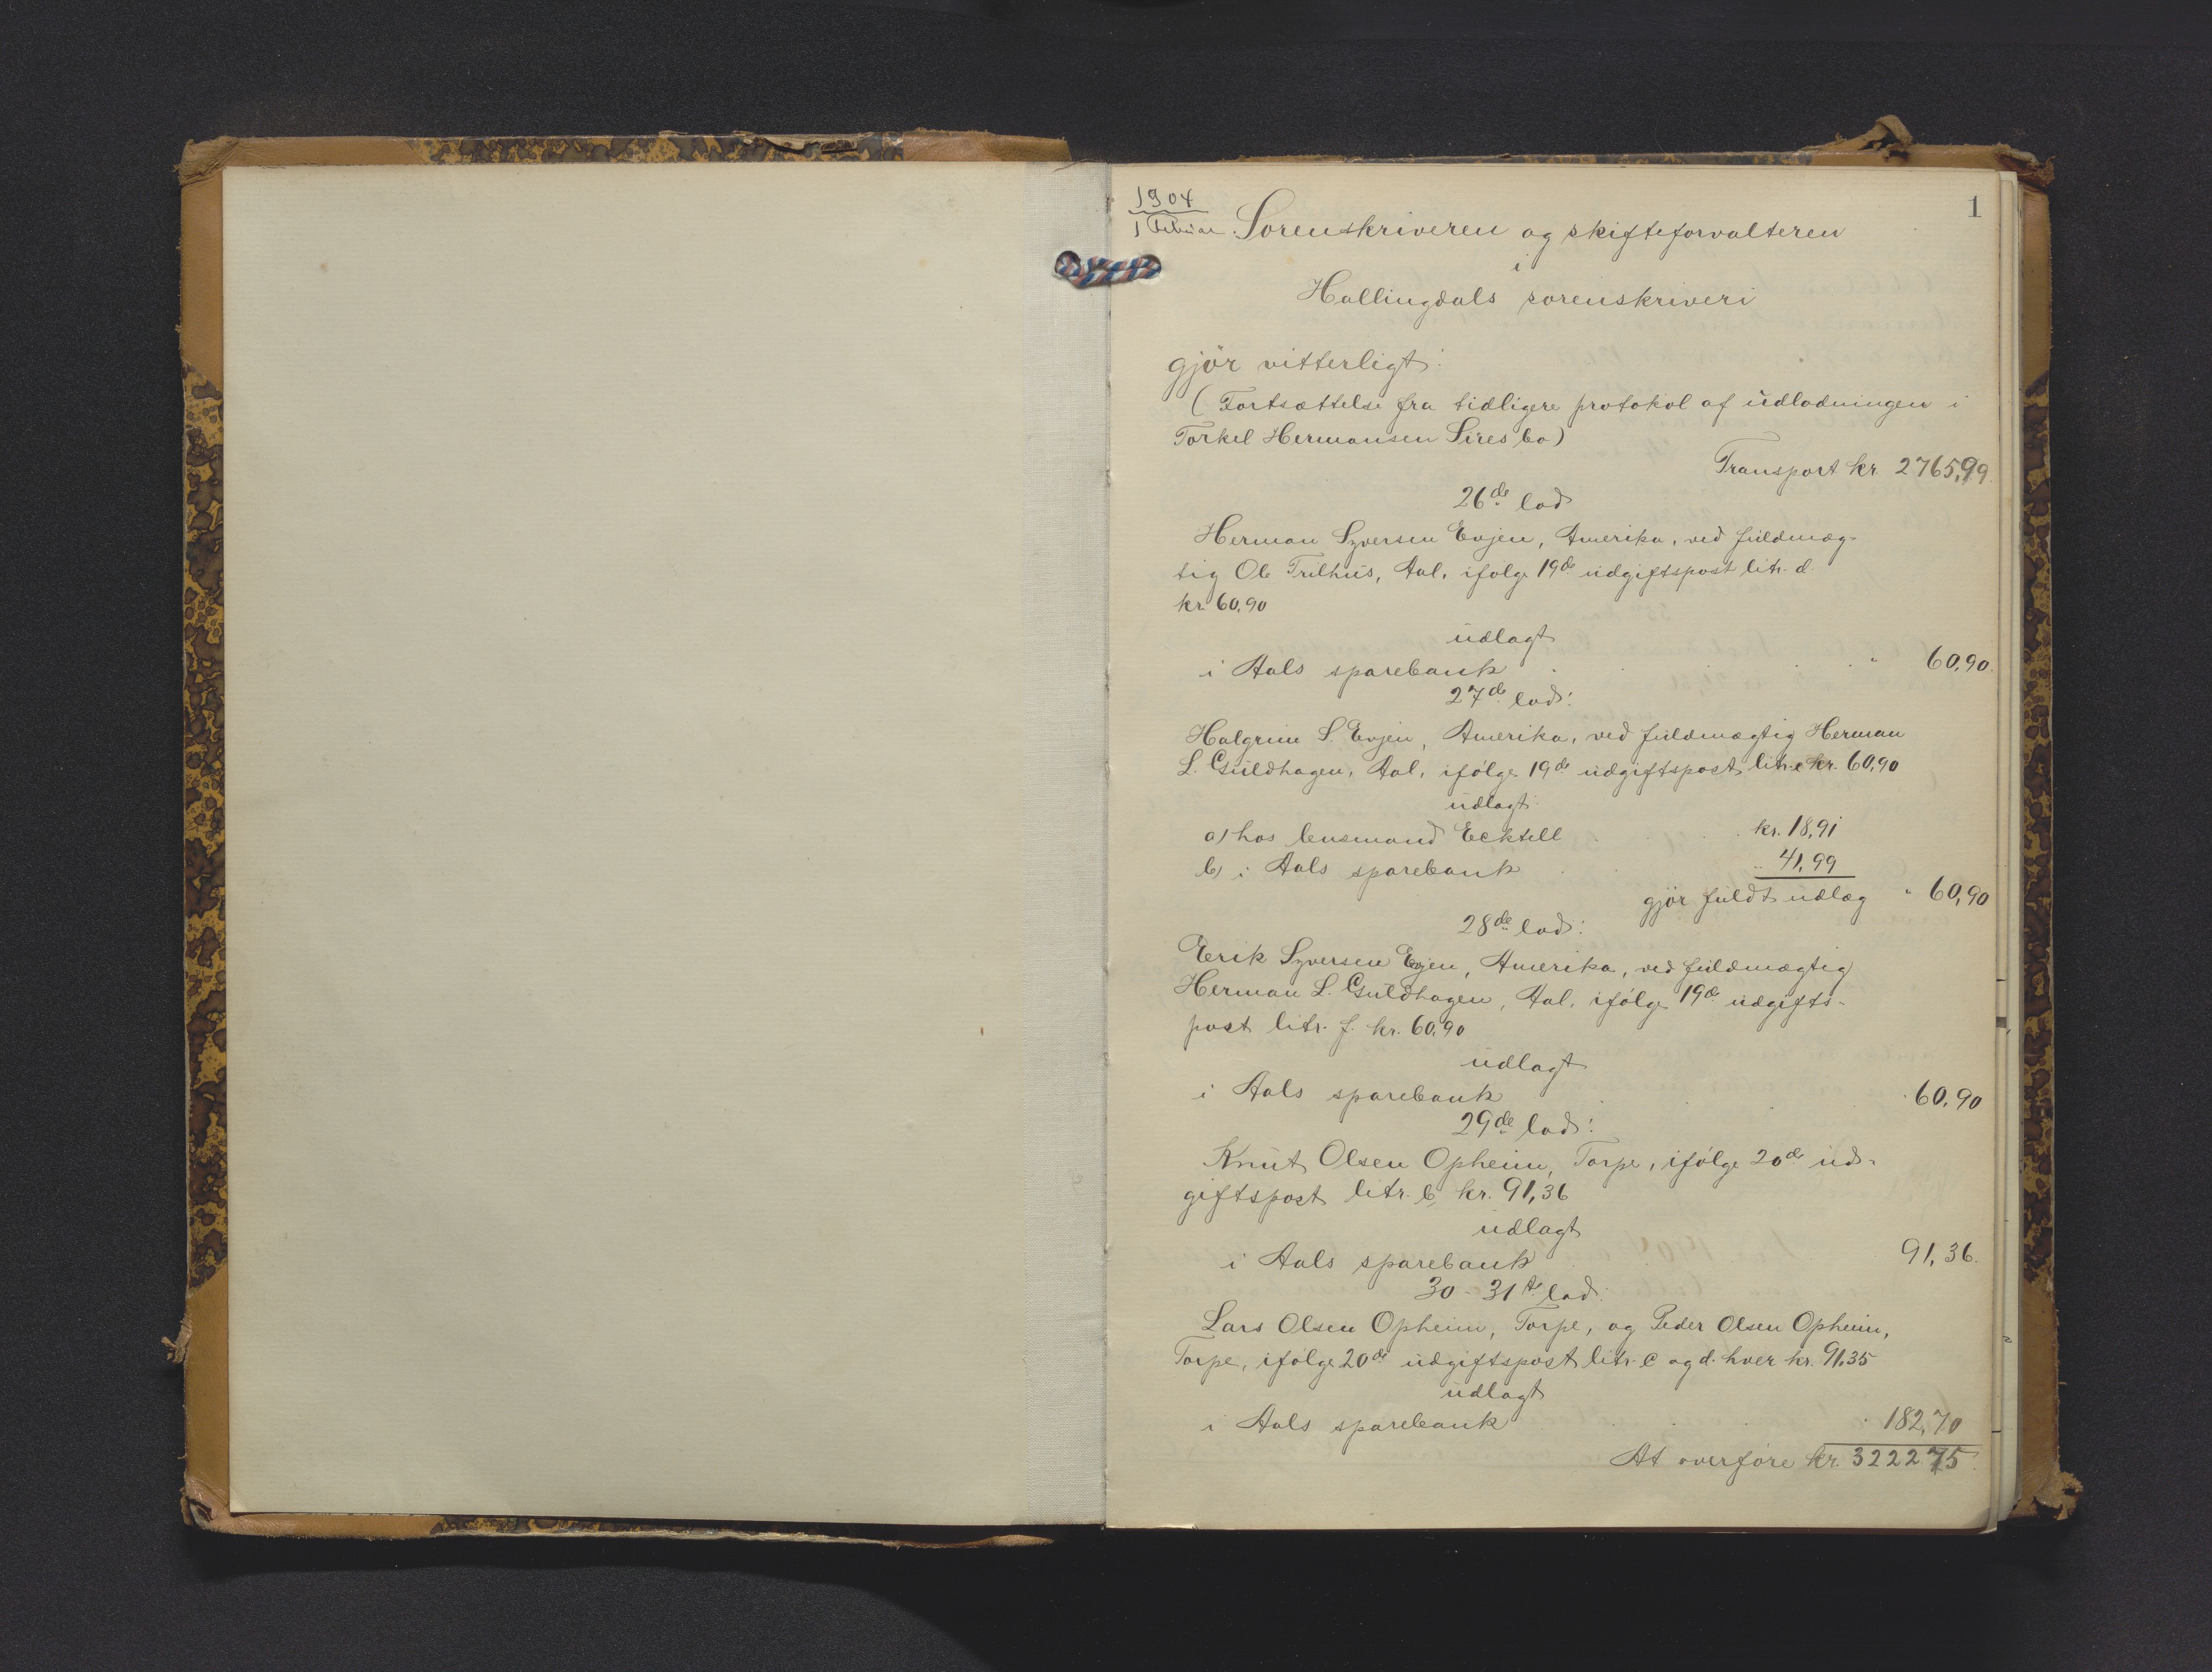 1904
1 Februar.
1
Sorenskriveren og skifteforvalteren
i
Hallingdals sorenskriveri
gjör vitterligt:
(Fortsættelse fra tidligere protokol af udlodningen i
Torkel Hermansen Sires bo)
Transport kr. 2765,99
26de lod
Herman Syversen Evjen, Amerika, ved fuldmæg-
tig Ole Trilhus, Aal, ifølge 19de udgiftspost litr. d.
kr. 60,90
udlagt
i Aals sparebank . . . . . " 60,90.
27de lod:
Halgrim S. Evjen, Amerika, ved fuldmægtig Herman
L. Guldhagen, Aal, ifølge 19de udgiftspost litr. e kr. 60,90
udlagt:
a) hos lensmand Ecktell . . . kr. 18,91
b) i Aals sparebank . . .. 41,99
gjör fuldt udlæg " 60,90
28de lod:
Erik Syversen Evjen, Amerika, ved fuldmægtig
Herman L. Guldhagen, Aal, ifølge 19de udgifts-
post litr. f. kr. 60,90
udlagt
i Aals sparebank . . . . 60,90
29de lod:
Knut Olsen Opheim, Torpe, ifølge 20de ud-
giftspost litr. b, kr. 91,36
udlagt
i Aals sparebank 91,36.
30 - 31te lod:
Lars Olsen Opheim, Torpe, og Peder Olsen Opheim,
Torpe, ifølge 20de udgiftspost litr. c og d. hver kr. 91,35
udlagt
i Aals sparebank . . . . 182,70
At overføre kr. 3222 75.